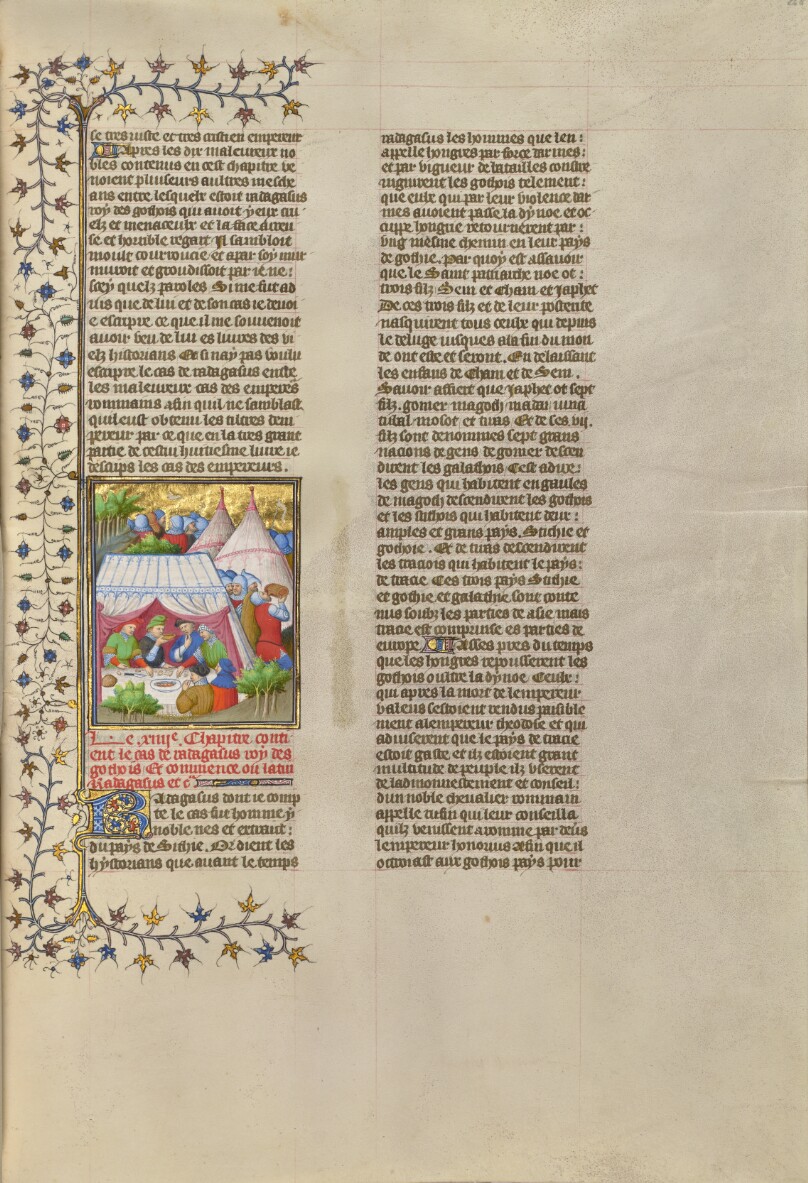 se tres iuste et tres cristien empereur
Apres les dix maleureux no
bles contenus en cest chapitre ve
noient pluseurs aultres mesche
ans entre lesquelx estoit radagasus
roy des gothois qui auoit yeux cru
elz et menaceulx et la face
se et horrible regart Il sambloit
moult courroucie et apar soy mur
muroit et groudissoit par ie ne
scey quelz paroles Si me fut ad
uis que de lui et de son cas ie deuoi
e escripre ce que il me souuenoit
auoir veu de lui es liures des vi
elz historians Et si nay pas voulu
escripre le cas de radagasus entre
les maleureux cas des emperes
rommains afin quil ne samblast
quil eust obtenu les tiltres dem
pereur par ce que en la tres grant
partie de cestui huitiesme liure ie
descrips les cas des empereurs.
Le .xiiiie. Chapitre conti
ent le cas de radagasus roy des
gothois Et commence ou latin
Radagasus et c
Radagasus dont ie comp
te le cas fut homme
noble nes et extrait
du pays de Sithie. Or dient les
hystorians que auant le temps
radagasus les hommes que len
appelle hongres par force darmes
et par vigueur de batailles contre
les gothois telement
que eulx qui par leur violence dar
mes auoient passe la dynoe et oc
cuppe hongrie retournerent par
vng mesme chemin en leur pays
de gothie. Par quoy est assauoir
que le Saint patriarche noe ot
trois filz Sem et Cham et Japhet
De ces trois filz et de leur posterite
nasquirent tous ceulx qui depuis
le deluge iusques ala fin du mon
de ont este et seront. En delaissant
les enfans de Cham et de Sem.
Sauoir affiert que Japhet ot sept
filz. gomer magoch madai
tubal mosot et tiras Et de ses .vii.
filz sont denommes sept grans
nacions de gens de gomer descen
dirent les galathois Cest adire
les gens qui habitent en gaules
de magoch descendirent les gothois
et les sithois qui habitent deux
amples et grans pays. Sithie et
gothie. Et de tiras descendirent
les traciois qui habitent le pays
de tracie Ces trois pays Sithie
et gothie et galathie sont conte
nus soubz les parties de asie mais
tracie est comprinse es parties de
europe. Asses pres du temps
que les hongres repousserent les
gothois oultre la dynoe Ceulx
qui apres la mort de lempereur
valens sestoient rendus paisible
ment alempereur theodose et qui
aduiserent que le pays de tracie
estoit gaste et ilz estoient grant
multitude de peuple ilz vserent
de ladmonnestement et conseil
dun noble cheualier rommain
appelle rufin qui leur conseilla
quilz venissent a romme par deuers
lempereur honorius afin que il
octroiast aux gothois pays pour